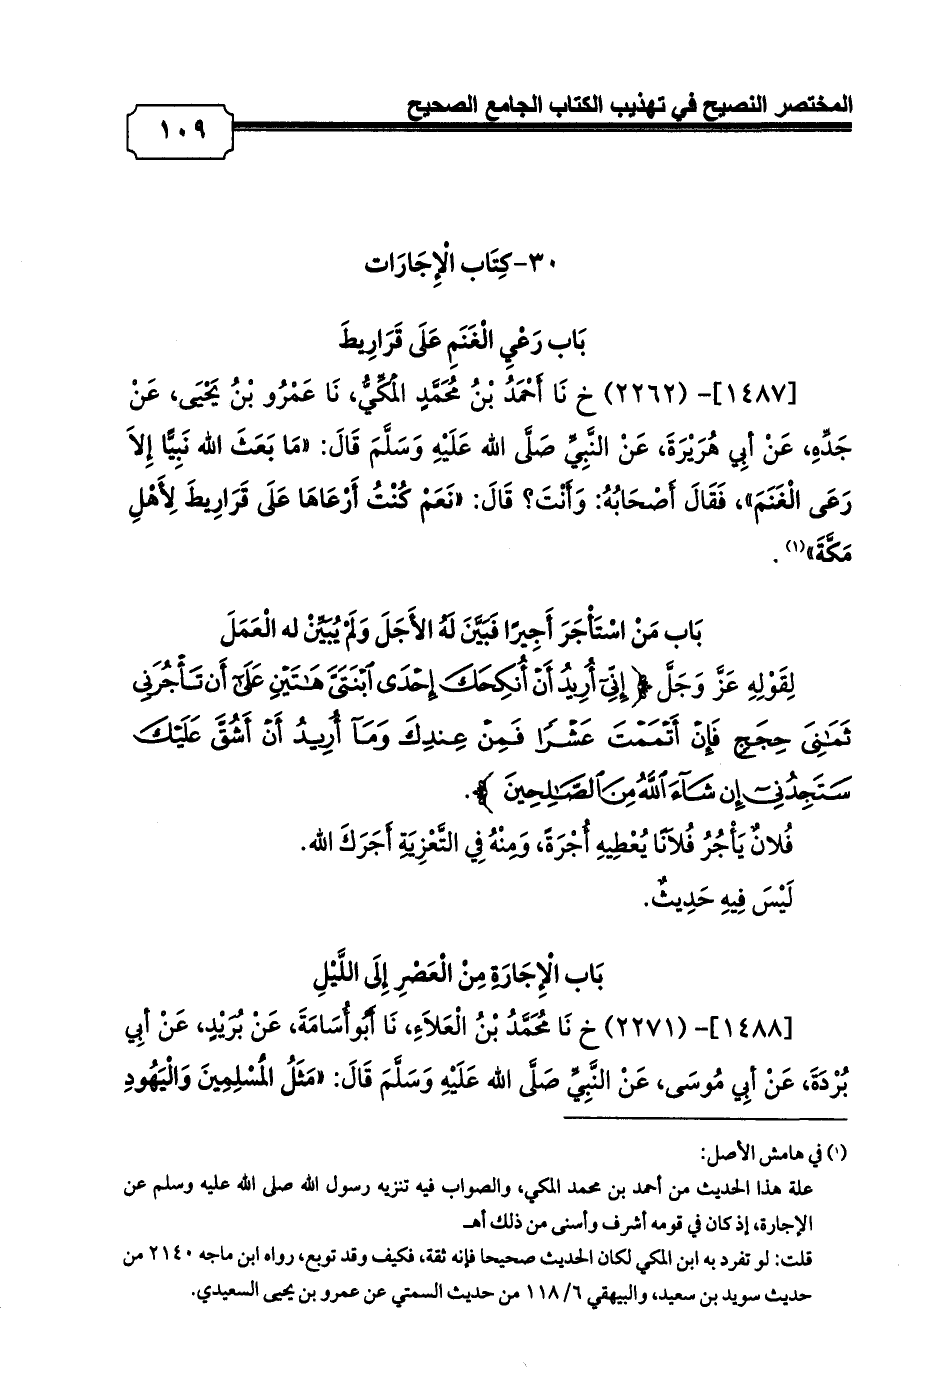 المختصر النصيح في تهذيب الكتاب الجامع الصحيح
١٠٩
٣٠- كِتَاب الْإِجَارَات
بَاب رَعْيِ الْغَنَمِ عَلَى قَرَارِيطَ
[١٤٨٧]- (٢٢٦٢) خ نَا أَحْمَدُ بْنُ مُحَمَّدٍ الْمَكِّيُّ، نَا عَمْرُو بْنُ يَحْيَى، عَنْ
جَدِّهِ، عَنْ أبِي هُرَيْرَةَ، عَنْ النَّبِيِّ صَلَّى الله عَلَيْهِ وَسَلَّمَ قَالَ: «مَا بَعَثَ الله نَبِيًّا إِلاَ
رَعَى الْغَنَمَ»، فَقَالَ أَصْحَابُهُ: وَأَنْتَ؟ قَالَ: «نَعَمْ كُنْتُ أَرْعَاهَا عَلَى قَرَارِيطَ لِأَهْلِ
مَكَّةَ»(١).
بَاب مَنْ اسْتَأْجَرَ أَجِيرًا فَبَيَّنَ لَهُ الأَجَلَ وَلَمْ يُبَيِّنْ له الْعَمَلَ
لِقَوْلِهِ عَزَّ وَجَلَّ ﴿ إِنِّىٓ أُرِيدُ أَنْ أُنكِحَكَ إِحْدَى ٱبْنَتَىَّ هَٰتَيْنِ عَلَىٰٓ أَن تَأْجُرَنِى
ثَمَٰنِىَ حِجَجٍ فَإِنْ أَتْمَمْتَ عَشْرًا فَمِنْ عِندِكَ وَمَآ أُرِيدُ أَنْ أَشُقَّ عَلَيْكَ
سَتَجِدُنِىٓ إِن شَآءَ ٱللَّهُ مِنَ ٱلصَّٰلِحِينَ ﴾.
فُلانٌ يَأْجُرُ فُلاَنًا يُعْطِيهِ أُجْرَةً، وَمِنْهُ فِي التَّعْزِيَةِ أَجَرَكَ الله.
لَيْسَ فِيهِ حَدِيثٌ.
بَاب الْإِجَارَةِ مِنْ الْعَصْرِ إِلَى اللَّيْلِ
[١٤٨٨]- (٢٢٧١) خ نَا مُحَمَّدُ بْنُ الْعَلاَءِ، نَا أَبُو أُسَامَةَ، عَنْ بُرَيْدٍ، عَنْ أبِي
بُرْدَةَ، عَنْ أبِي مُوسَى، عَنْ النَّبِيِّ صَلَّى الله عَلَيْهِ وَسَلَّمَ قَالَ: «مَثَلُ الْمُسْلِمِينَ وَالْيَهُودِ
(١) في هامش الأصل:
علة هذا الحديث من أحمد بن محمد المكي، والصواب فيه تنزيه رسول الله صلى الله عليه وسلم عن
الإجارة، إذ كان في قومه أشرف وأسنى من ذلك أهـ
قلت: لو تفرد به ابن المكي لكان الحديث صحيحا فإنه ثقة، فكيف وقد توبع، رواه ابن ماجه ٢١٤٠ من
حديث سويد بن سعيد، والبيهقي ٦/ ١١٨ من حديث السمتي عن عمرو بن يحيى السعيدي.